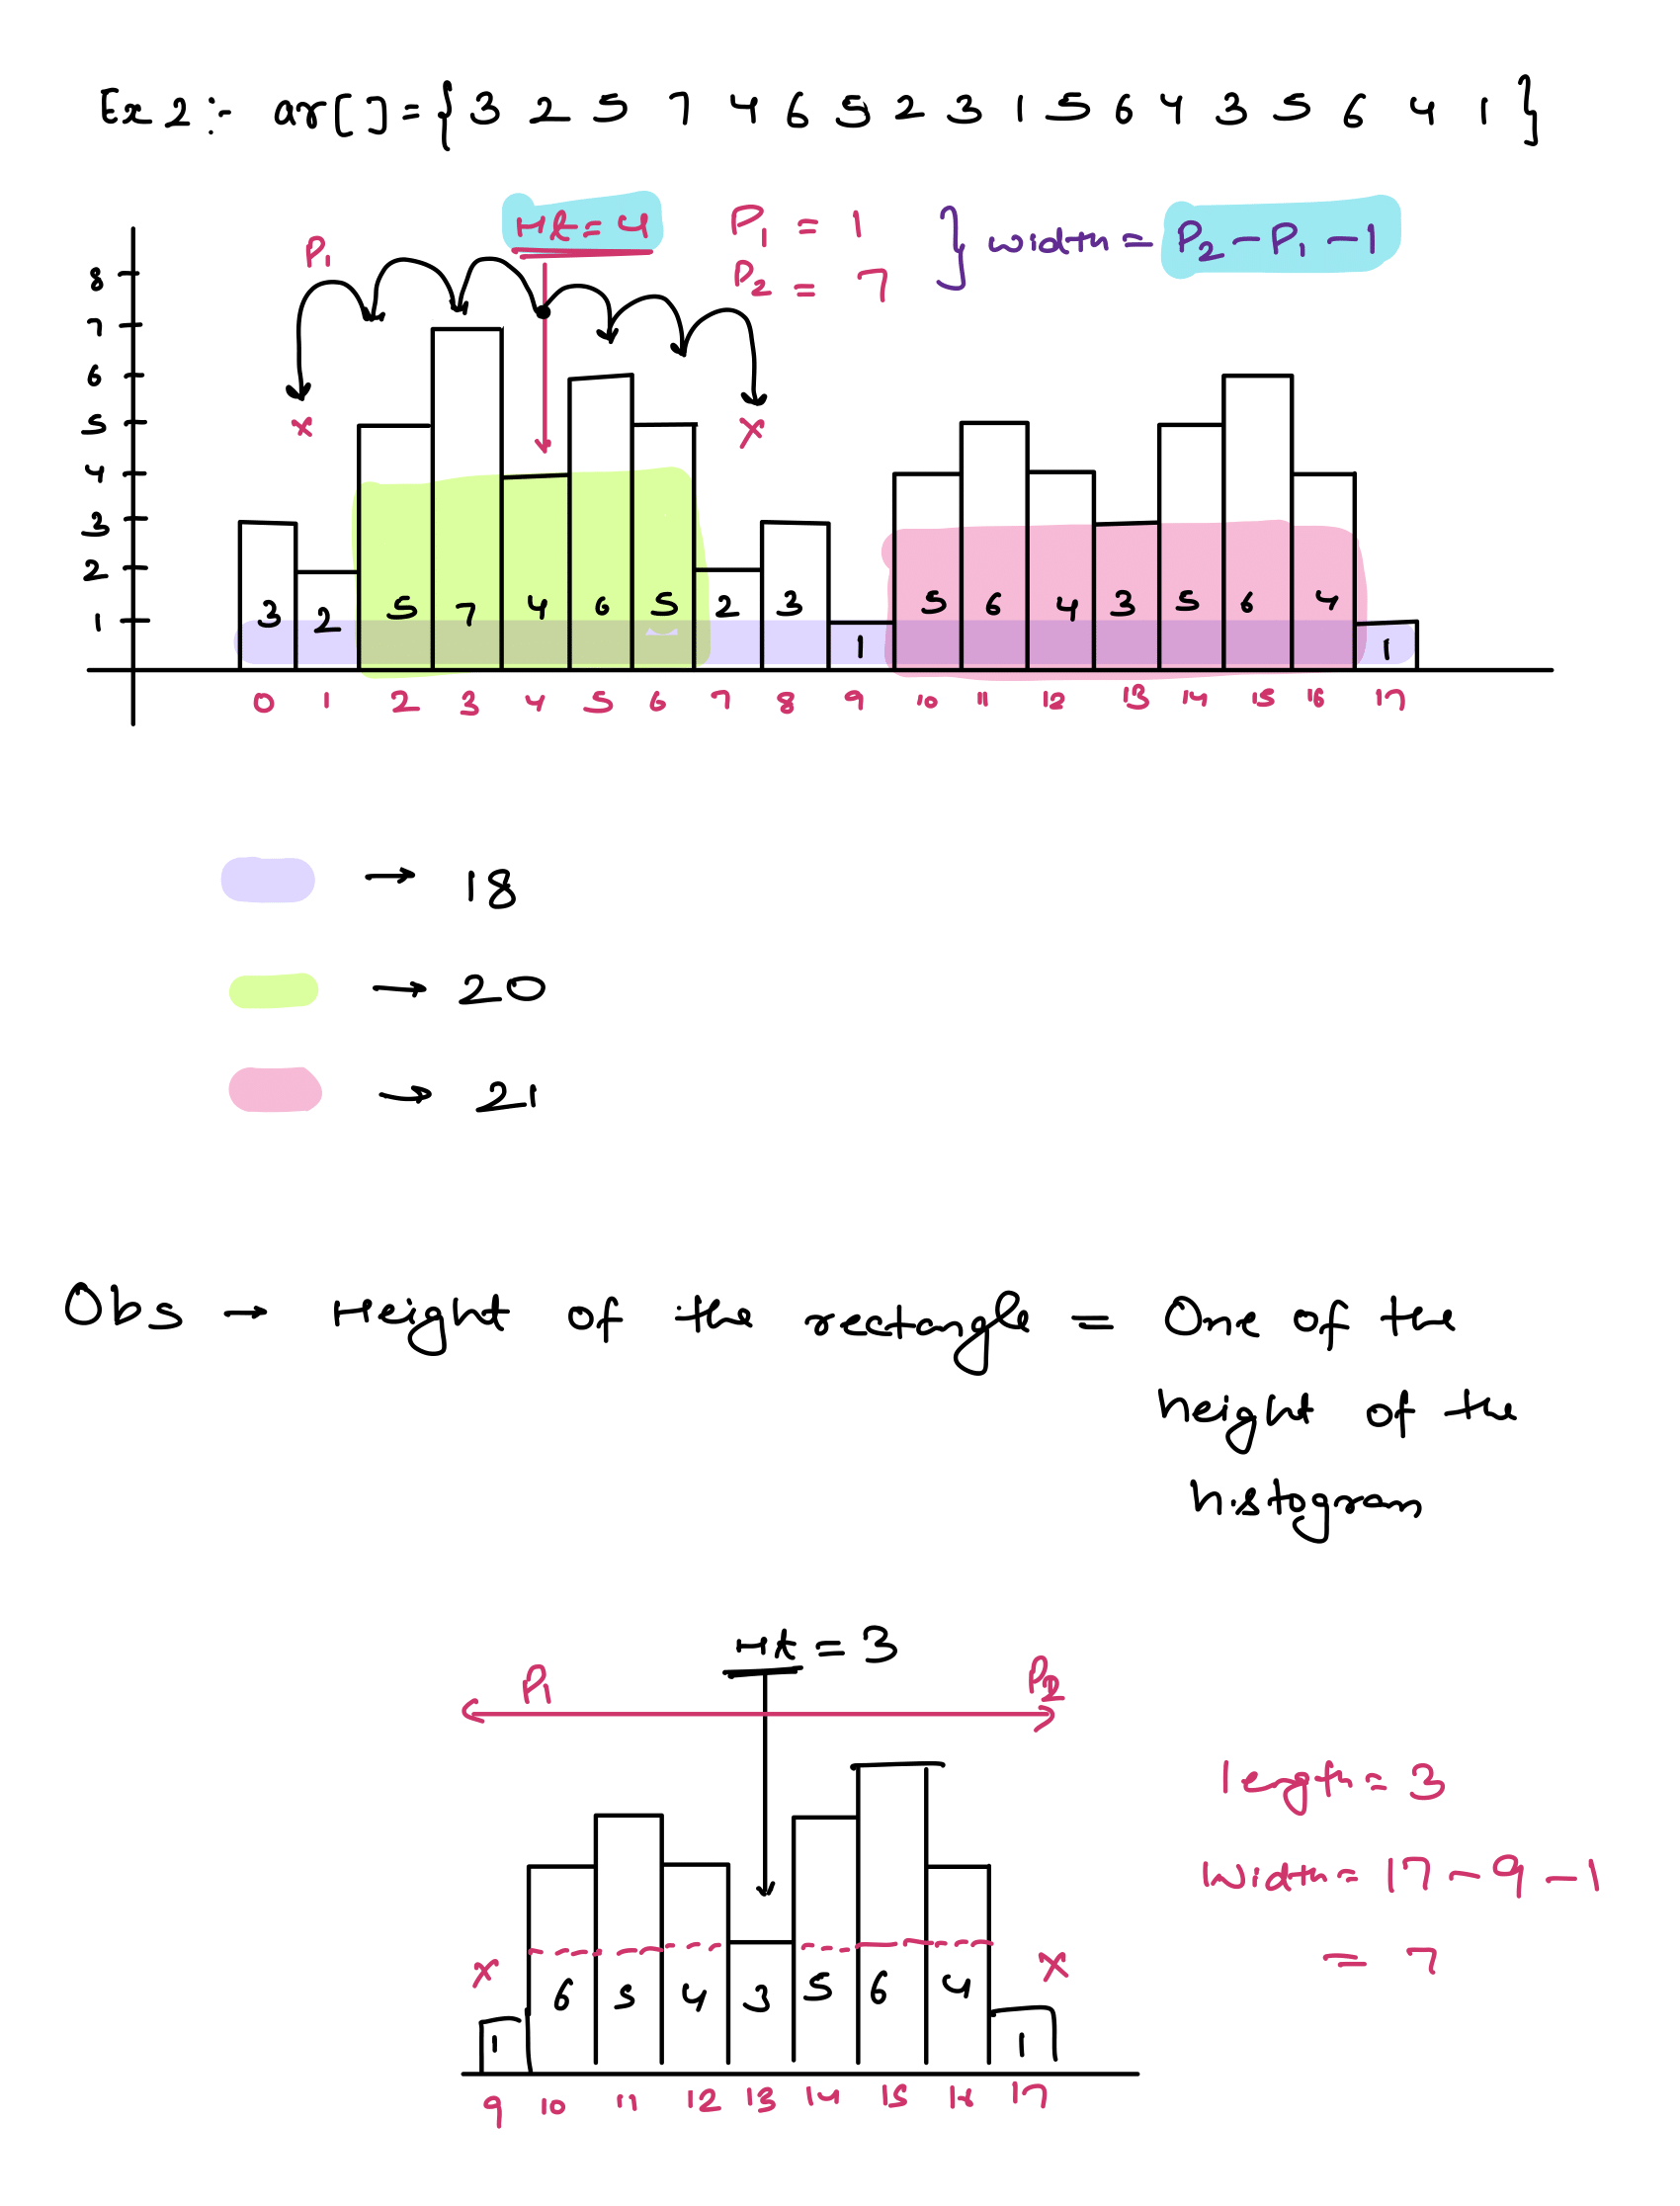 Ex 2 :- ar[ ] = { 3 2 5 7 4 6 5 2 3 1 5 6 4 3 5 6 4 1 }
Ht = 4
P1 = 1
P2 = 7
} width = P2 - P1 - 1
P1
8
7
6
5
4
3
2
1
x x
3 2 5 7 4 6 5 2 3 1 5 6 4 3 5 6 4 1
0 1 2 3 4 5 6 7 8 9 10 11 12 13 14 15 16 17
→ 18
→ 20
→ 21
Obs → Height of the rectangle = One of the
height of the
histogram
Ht = 3
P1 P2
length = 3
width = 17 - 9 - 1
= 7
x x
1 6 5 4 3 5 6 4 1
9 10 11 12 13 14 15 16 17